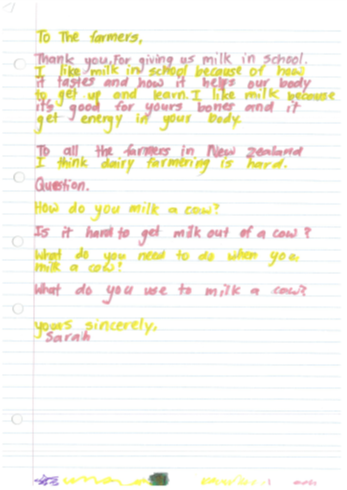 To The farmers,
Thank you,For giving us milk in school.
I like milk in school because of how
it tastes and how it helps our body
to get up and learn.I like milk because
it's good for yours bones and it
get energy in your body.
To all the farmers in New Zealand
I think dairy farmering is hard.
Question.
How do you milk a cow?
Is it hard to get milk out of a cow?
What do you need to do when you
milk a cow?
What do you use to milk a cow?
yours sincerely,
Sarah